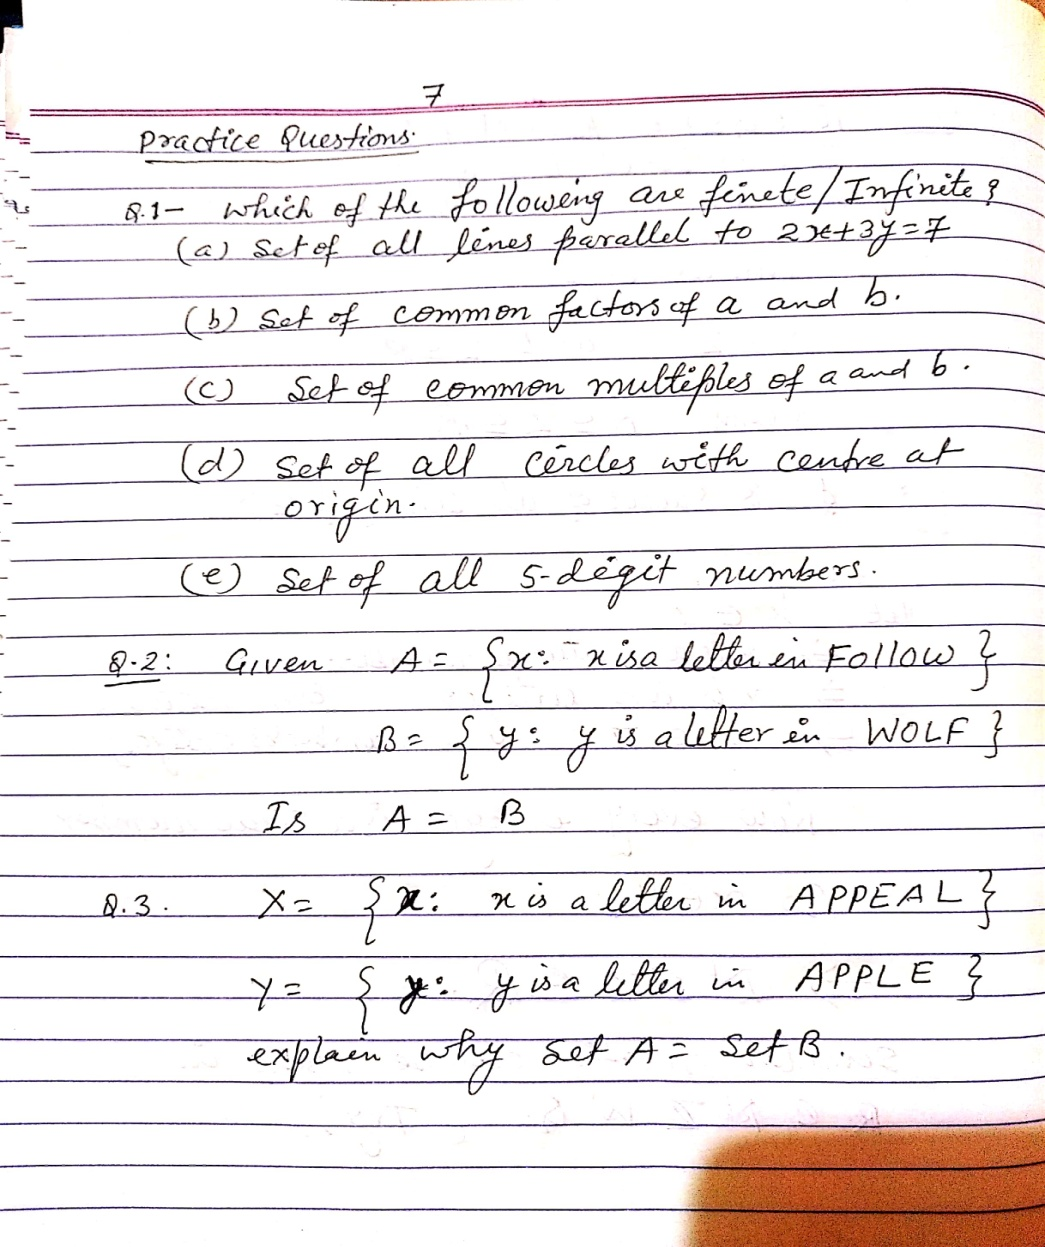 7
Practice Questions.
Q.1- Which of the following are finete/Infinite?
(a) Set of all lines parallel to 2x+3y=7
(b) Set of common factors of a and b.
(c) Set of common multiples of a and b.
(d) Set of all circles with centre at
origin.
(e) Set of all 5-digit numbers.
Q.2: Given A = {x: x is a letter in FOllOW}
B = {y: y is a letter in WOLF}
Is A = B
Q.3. X = {x: x is a letter in APPEAL}
Y = {y: y is a letter in APPLE}
explain why Set A = Set B.